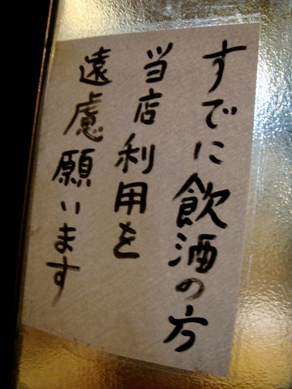 すでに飲酒の方
当店利用を
遠慮願います